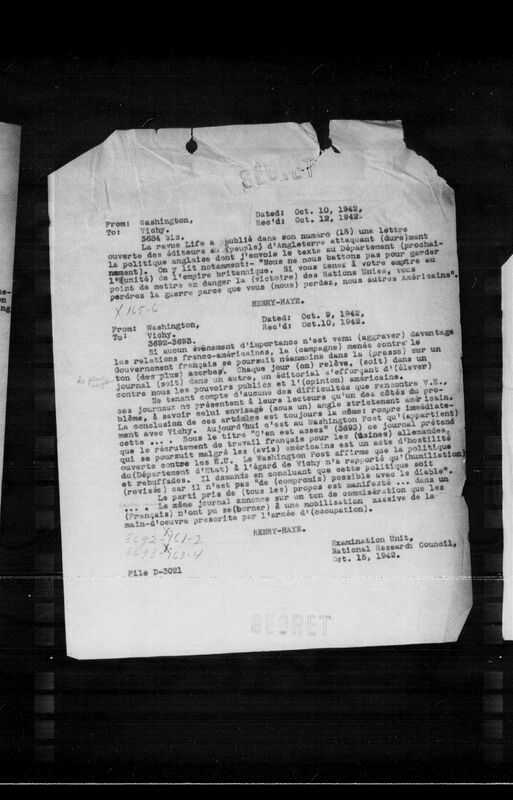 SECRET
From: Washington, Dated: Oct. 10, 1942.
To: Vichy. Rec'd: Oct. 12, 1942.
3684 bis.
La revue Life a publié dans son numéro (15) une lettre
ouverte des éditeurs au (peuple) d'Angleterre attaquant (dure)ment
la politique anglaise dont j'envoie le texte au Département (prochai-
nement). On y lit notamment:- "Nous ne nous battons pas pour garder
l'(unité) de l'empire britannique. Si vous tenez à votre empire au
point de mettre en danger la (victoire) des Nations Unies, vous
perdrez la guerre parce que vous (nous) perdez, nous autres Américains".
X 165-6
HENRY-HAYE.
From: Washington, Dated: Oct. 9, 1942.
To: Vichy. Rec'd: Oct.10, 1942.
3692-3693.
Si aucun évènement d'importance n'est venu (aggraver) davantage
les relations franco-américaines, la (campagne) menée contre le
Gouvernement français se poursuit néanmoins dans la (presse) sur un
ton (des plus) acerbes. Chaque jour (on) relève, (soit) dans un
journal (soit) dans un autre, un éditorial s'efforçant d'(élever)
contre nous les pouvoirs publics et l'(opinion) américaine.
Ne tenant compte d'aucune des difficultés que rencontre V.E.,
ces journaux ne présentent à leurs lecteurs qu'un des côtés du pro-
blème, à savoir celui envisagé (sous un) angle strictement américain.
La conclusion de ces articles est toujours la même: rompre immédiate-
ment avec Vichy. Aujourd'hui c'est au Washington Post qu'(appartient)
cette .... Sous le titre "C'en est assez" (3693) ce journal prétend
que le recrutement de travail français pour les (usines) allemandes,
qui se poursuit malgré les (avis) américains est un acte d'hostilité
ouverte contre les E.U. Le Washington Post affirme que la politique
du(Département d'Etat) à l'égard de Vichy n'a rapporté qu'(humiliation)
et rebuffades. Il demande en concluant que cette politique soit
(revisée) car il n'est pas "de (compromis) possible avec le diable".
Le parti pris de (tous les) propos est manifesté ... dans un
.... Le même journal annonce sur un ton de commisération que les
(Français) n'ont pu se(borner) à une mobilisation massive de la
main-d'oeuvre prescrite par l'armée d'(occupation).
HENRY-HAYE.
3692-X961-2
3693-X963-4
Examination Unit,
National Research Council,
Oct. 15, 1942.
File D-3021
SECRET